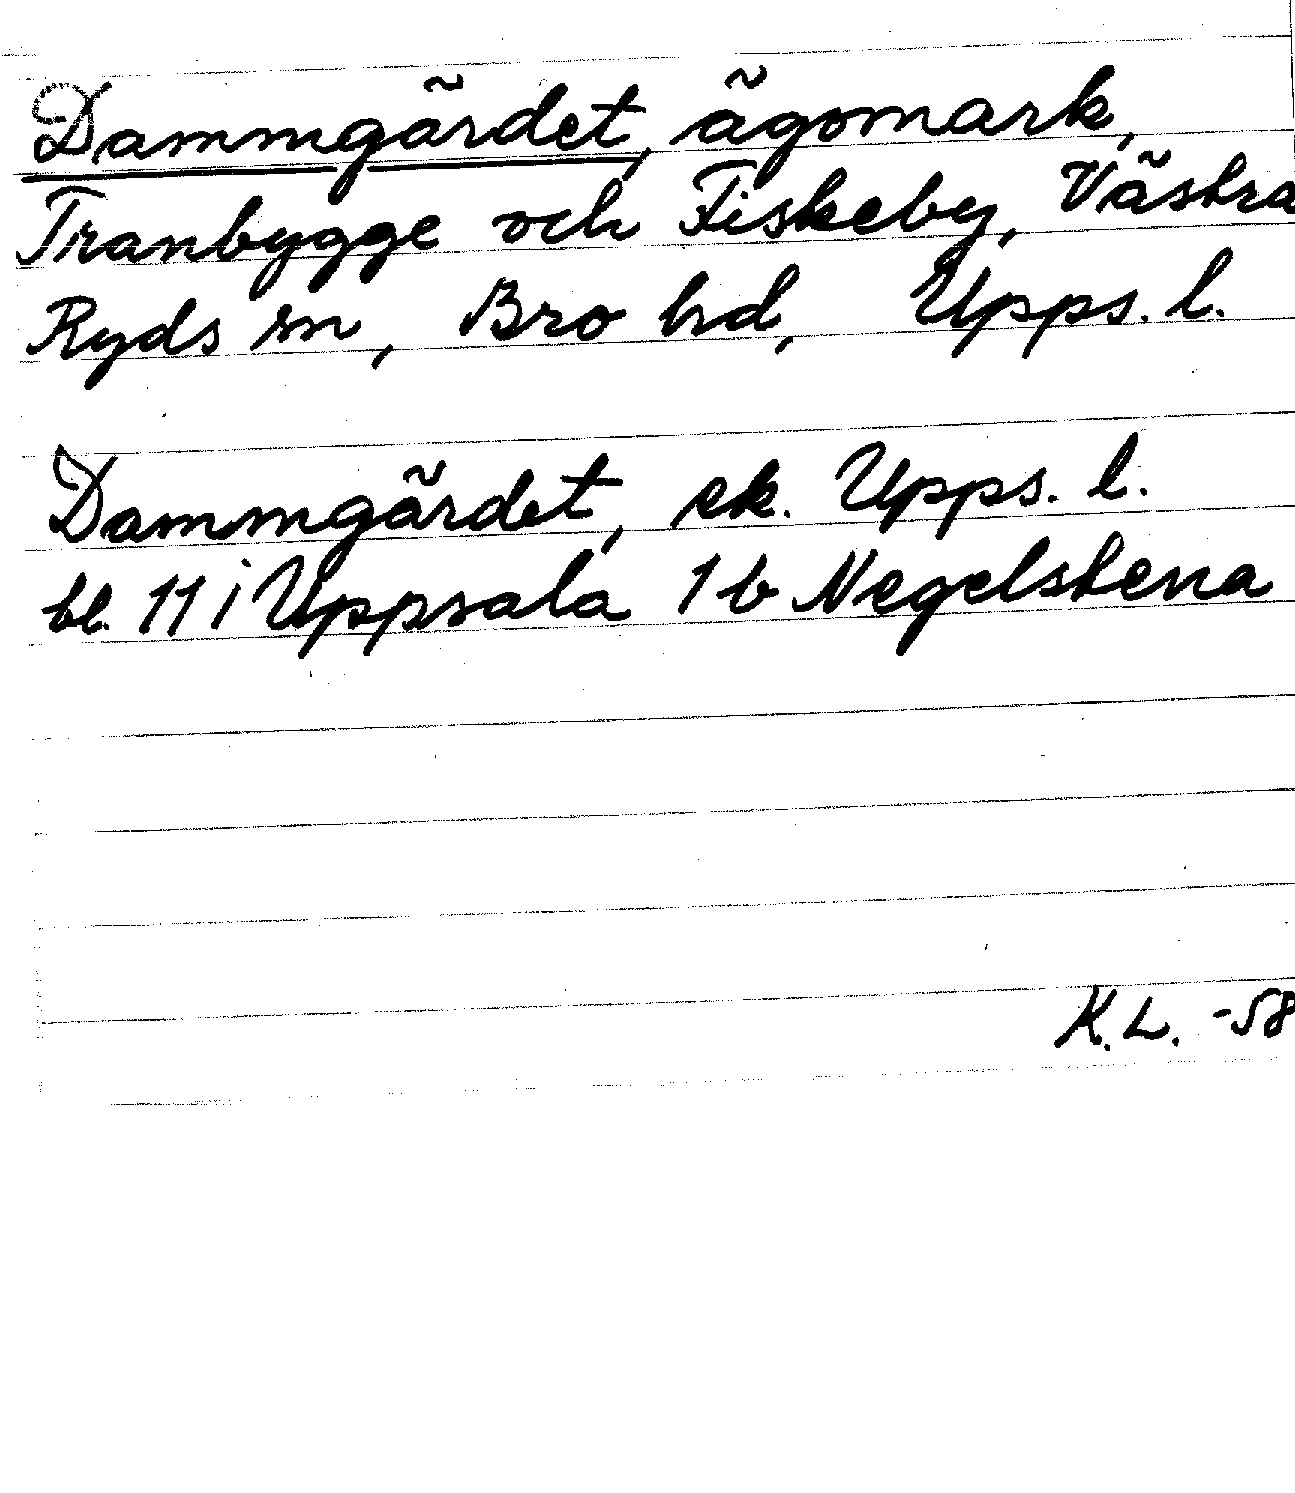 Dammgärdet, ägomark,
Tranbygge och Fiskeby, Västra
Ryds sn, Bro hd, Upps. l.
Dammgärdet, ek. Upps. l.
bl. 11 i Uppsala 1 b Negelstena
K.L. -58